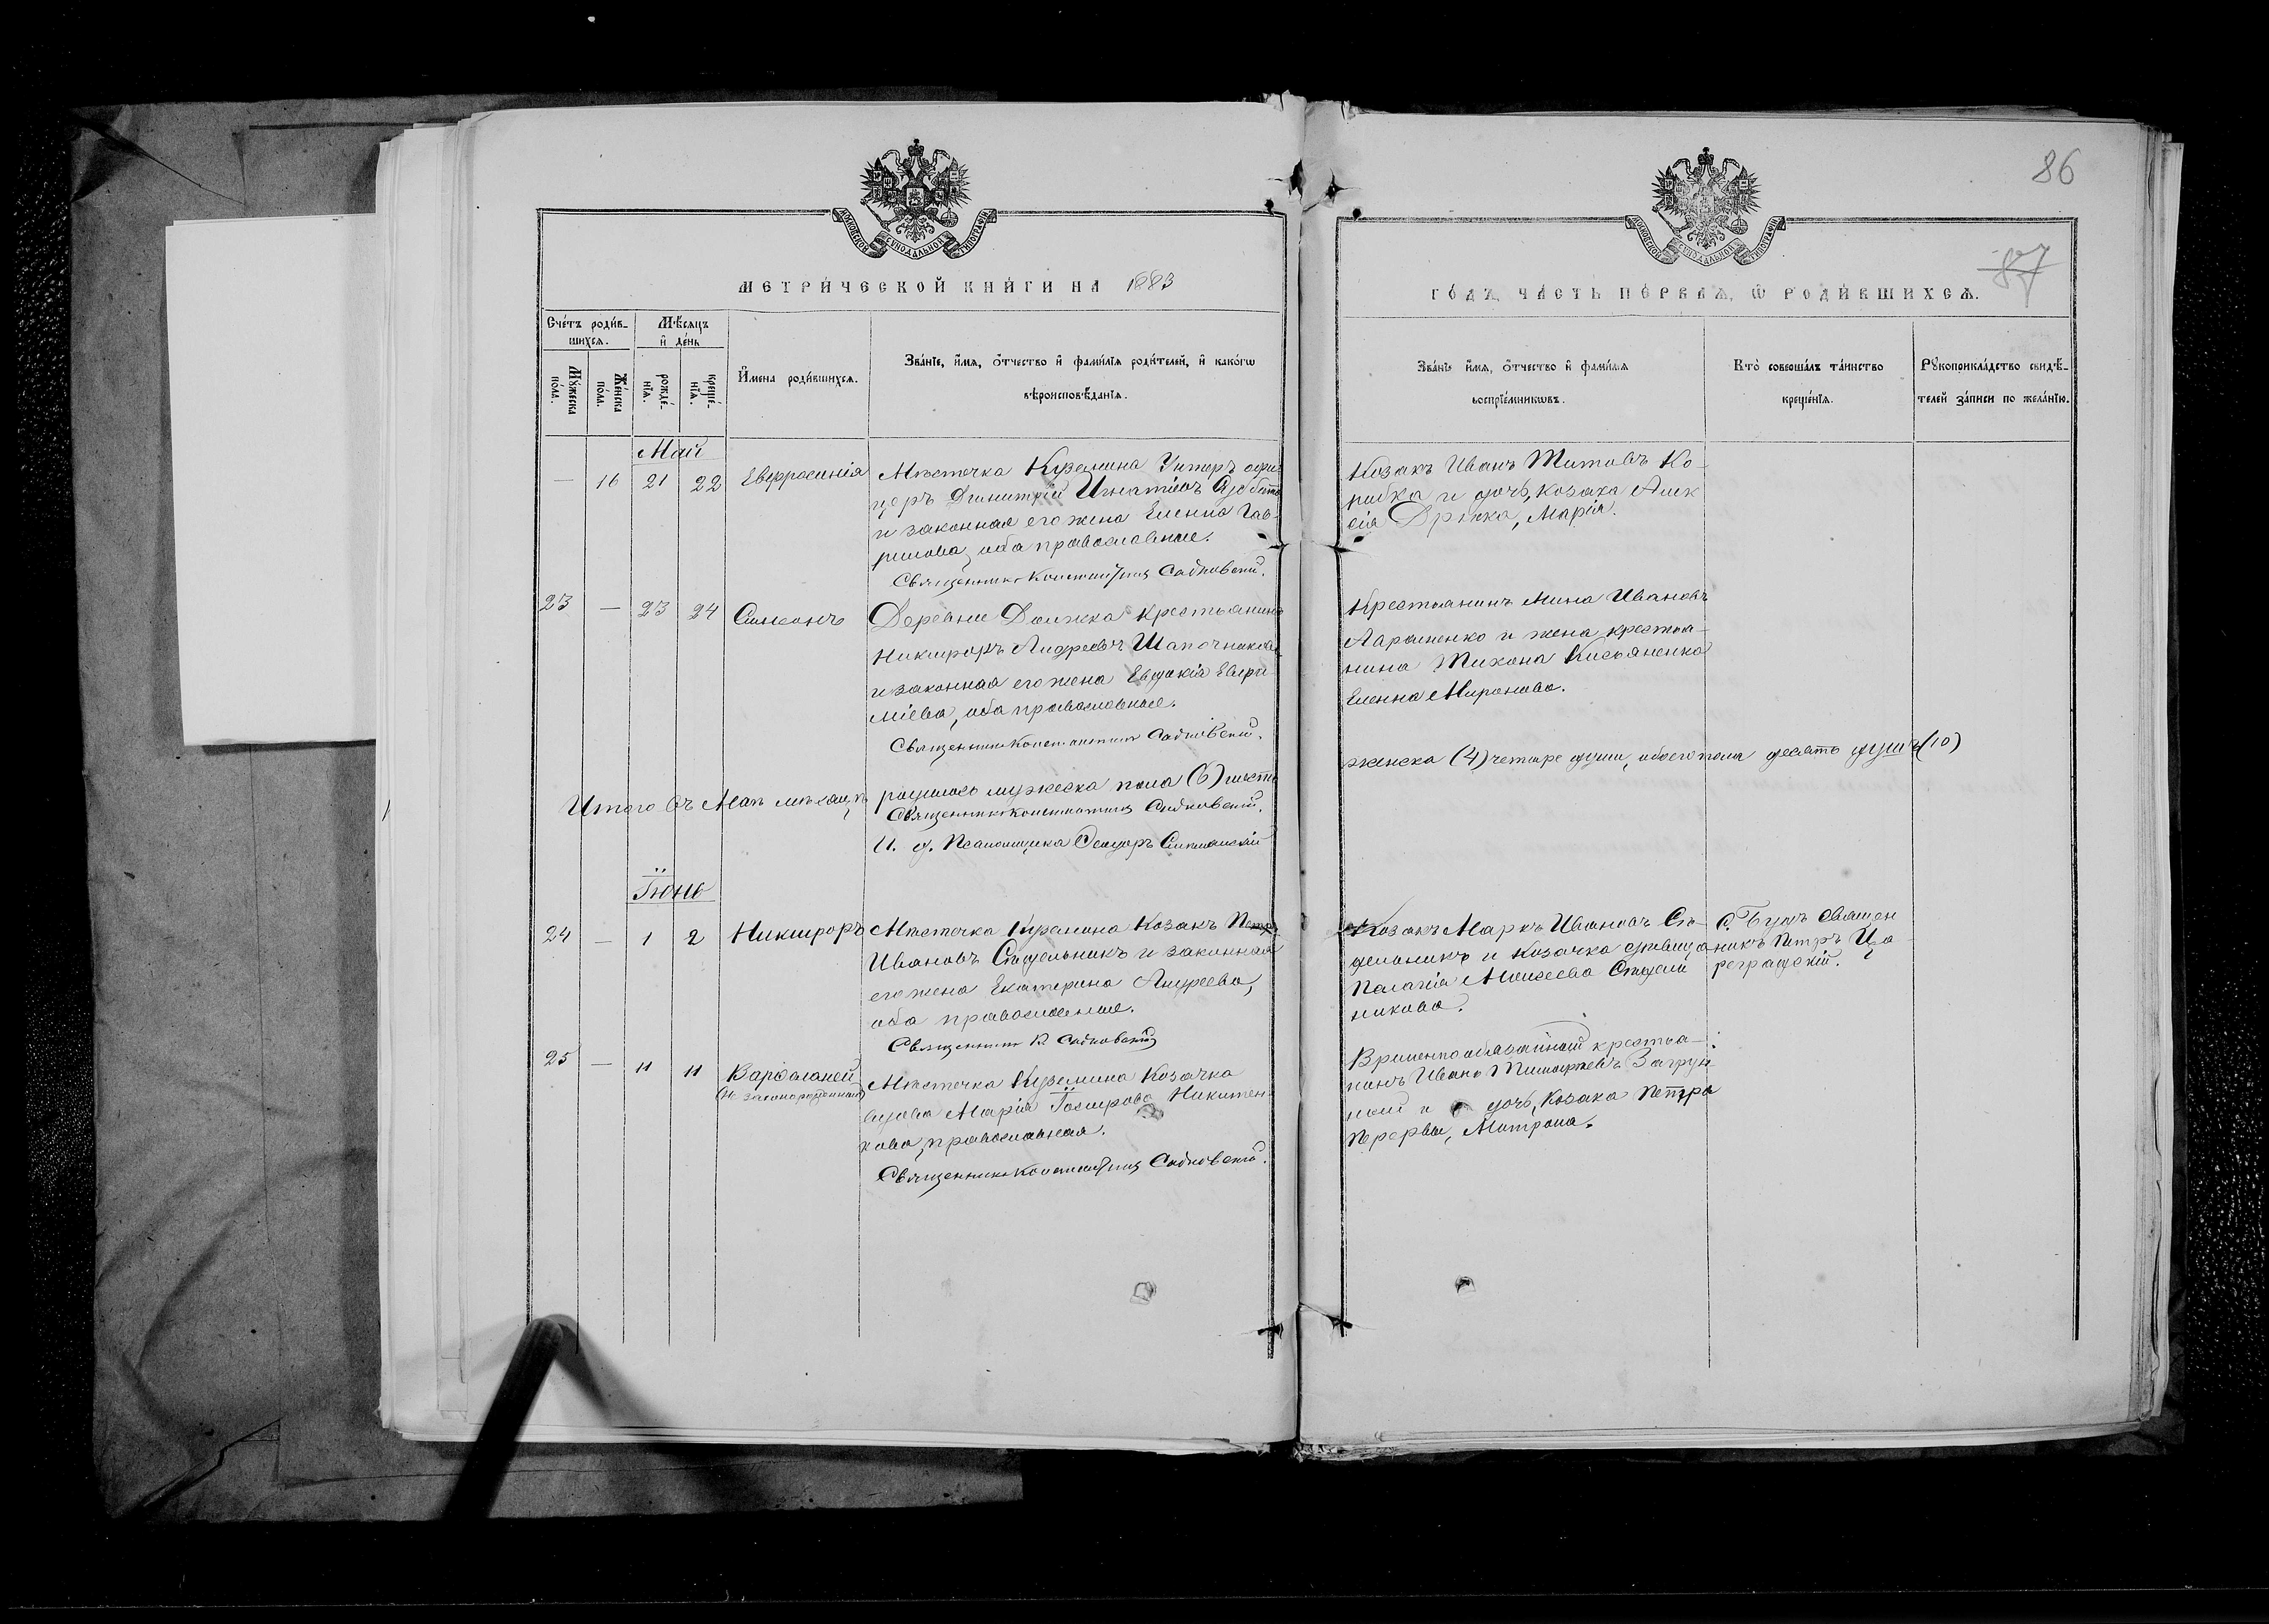 86
87
МОСКОВСКОЙ СѴНОДАЛЬНОЙ ТИПОГРАФІИ
МОСКОВСКОЙ СѴНОДАЛЬНОЙ ТИПОГРАФІИ
МЕТРИ́ЧЕСКОЙ КНИ́ГИ НА 1883
ГО́ДЪ, ЧА́СТЬ ПЕ́РВАѦ, Ѡ҆ РОДИ́ВШИХСѦ.
Сче́тъ роди́в-
шихсѧ.
Мꙋ́жеска
по́ла.
Же́нска
по́ла.
Мѣ́сѧцъ
и҆ де́нь
рожде́-
нїѧ.
креще́-
нїѧ.
И҆мена̀ роди́вшихсѧ.
Зва́нїе, и҆́мѧ, ѻ҆́тчество и҆ фами́лїѧ роди́телей, и҆ како́гѡ
вѣроисповѣ́данїѧ.
Зва́нїе и҆́мѧ, ѻ҆́тчество и҆ фами́лїѧ
воспрїе́мникѡвъ.
Кто̀ соверша́лъ та́инство
креще́нїѧ.
Рꙋкоприкла́дство свидѣ́-
телей за́писи по жела́нїю.
Май
— 16 21 22 Евфросинія Мѣстечка Куземина Унтеръ офи-
церъ Димитрій Игнатіевъ
и законная его жена Елена Гав-
рилова, оба православные.
Священникъ Константинъ Садковский.
Козакъ Иванъ Титовъ Ко-
рибка и дочь козака Алек
сія Дрюка, Марія.
23 — 23 24 Симеонъ Деревни Должка крестьянинъ
Никифоръ Андреевъ Шапочниковъ
и законная его жена Евдокія Евфи-
міева, оба православные.
Священникъ Константинъ Садковский.
Крестьянинъ Мина Ивановъ
и жена крестья-
нина Тихона Касьяненка
Елена Миронова.
Итого въ Маѣ мѣсяцѣ родилось мужеска пола (6) шесть
женска (4) четыре души, обоего пола десять душъ (10)
Священникъ Константинъ Садковский.
И. д. Псаломщика Ѳеодоръ
Іюнь
24 — 1 2 Никифоръ Мѣстечка Куземина Козакъ Петръ
Ивановъ Стадельникъ и законная
его жена Екатерина Андреева,
оба православные.
Священникъ К. Садковский
Козакъ Маркъ Ивановъ Ста-
дельникъ и козачка девица
Пелагія Моисеева Стадель
никова.
священ
никъ Петръ Ца-
реградский.
25 — 11 11 Варфоломей
(Незаконорожденный)
Мѣстечка Куземина Козачка
вдова Марія Никитен-
кова, православная.
Священникъ Константинъ Садковский.
Временнообязанный крестья-
нинъ Иванъ Тимофеевъ Загруд-
ный и дочь козака Петра
Перервы, Матрона.